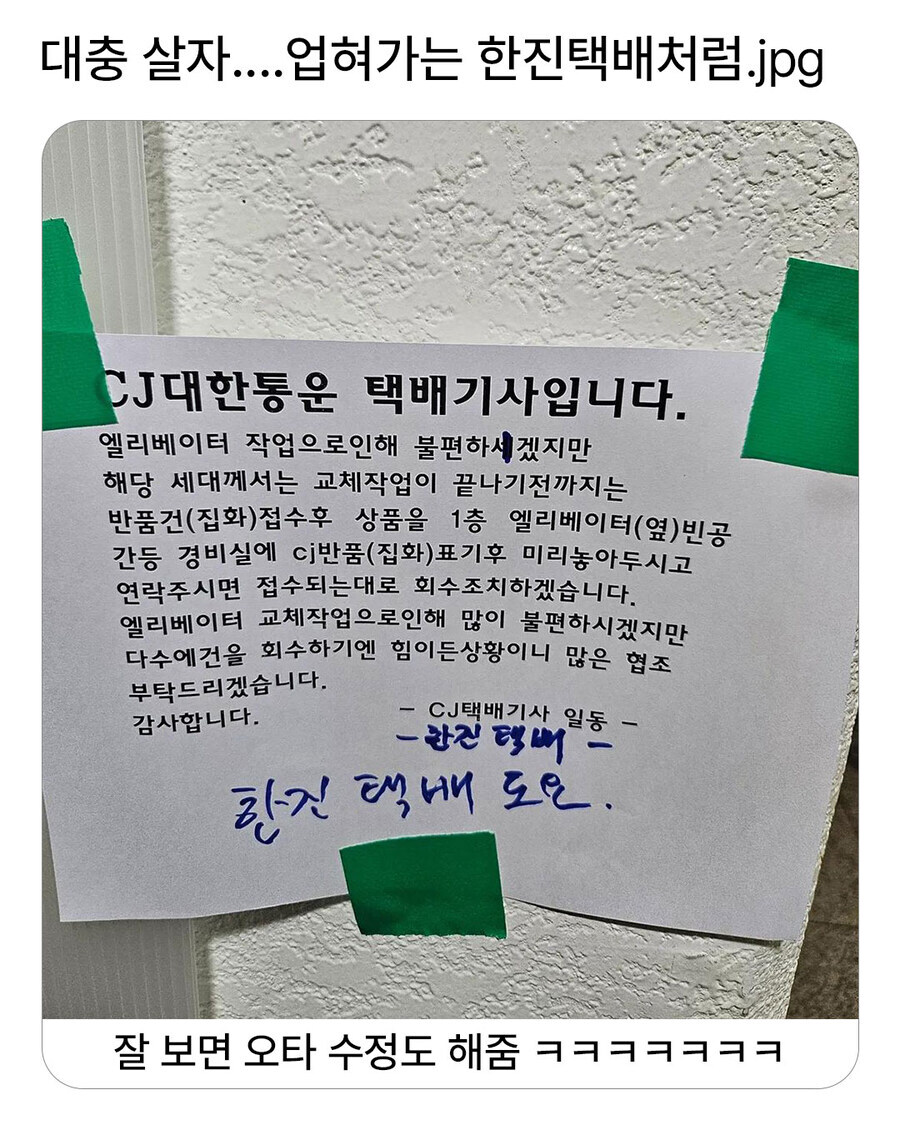 대충 살자....업혀가는 한진택배처럼.jpg
CJ대한통운 택배기사입니다.
엘리베이터 작업으로인해 불편하시겠지만
해당 세대께서는 교체작업이 끝나기전까지는
반품건(집화)접수후 상품을 1층 엘리베이터(옆)빈공
간등 경비실에 cj반품(집화)표기후 미리놓아두시고
연락주시면 접수되는대로 회수조치하겠습니다.
엘리베이터 교체작업으로인해 많이 불편하시겠지만
다수에건을 회수하기엔 힘이든상황이니 많은 협조
부탁드리겠습니다.
감사합니다.
- CJ택배기사 일동 -
- 한진 택배 -
한진 택배 도요.
잘 보면 오타 수정도 해줌 ㅋㅋㅋㅋㅋㅋㅋ